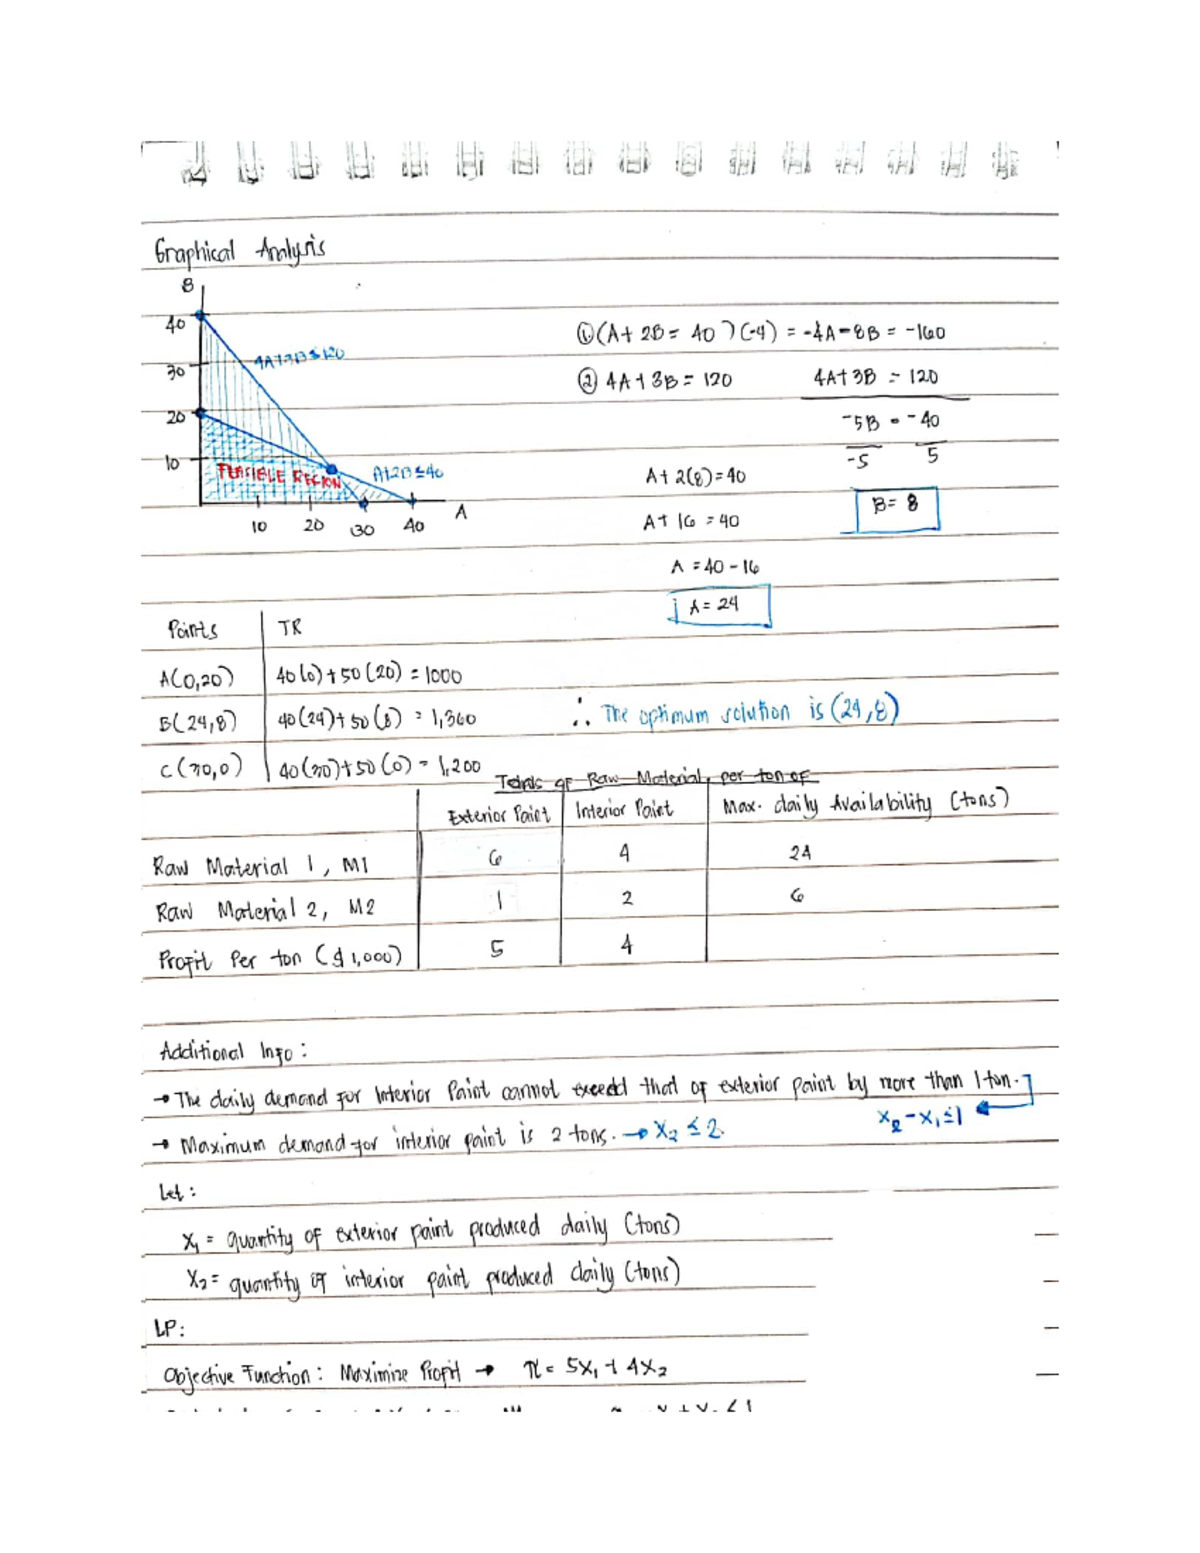 Graphical Analysis
B
40
30
20
10
4A+3B≤120
A+2B≤40
FEASIBLE REGION
A
10 20 30 40
① (A+2B=40)(-4) = -4A-8B = -160
② 4A+3B=120 4A+3B = 120
-5B = -40
-5 5
B=8
A+2(8)=40
A+16=40
A=40-16
A=24
Points TR
A(0,20) 40(0)+50(20)=1000
B(24,8) 40(24)+50(8)=1,360
∴ The optimum solution is (24,8)
C(30,0) 40(30)+50(0)=1,200
Tons of Raw Material per ton of
Exterior Paint Interior Paint Max. daily Availability (tons)
Raw Material 1, M1 6 4 24
Raw Material 2, M2 1 2 6
Profit Per ton ($1,000) 5 4
Additional Info:
→ The daily demand for Interior Paint cannot exceed that of exterior paint by more than 1 ton.
x₂-x₁≤1
→ Maximum demand for interior paint is 2 tons. → x₂≤2
Let:
x₁ = quantity of exterior paint produced daily (tons)
x₂ = quantity of interior paint produced daily (tons)
LP:
Objective Function: Maximize Profit → π = 5x₁ + 4x₂